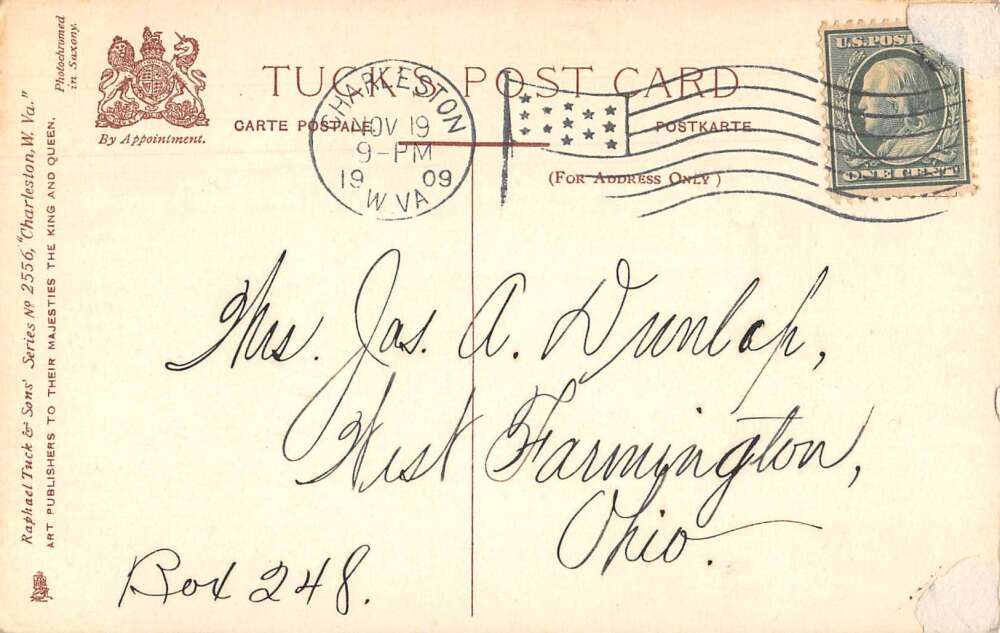 Photochromed
in Saxony.
Raphael Tuck & Sons' Series No 2556, "Charleston, W. Va."
ART PUBLISHERS TO THEIR MAJESTIES THE KING AND QUEEN.
By Appointment.
TUCK'S POST CARD
CARTE POSTALE.
POSTKARTE.
(FOR ADDRESS ONLY)
CHARLESTON
NOV 19
9-PM
1909
W VA
U.S. POST
ONE CENT
Mrs. Jas. A. Dunlap,
West Farmington,
Ohio.
Box 248.